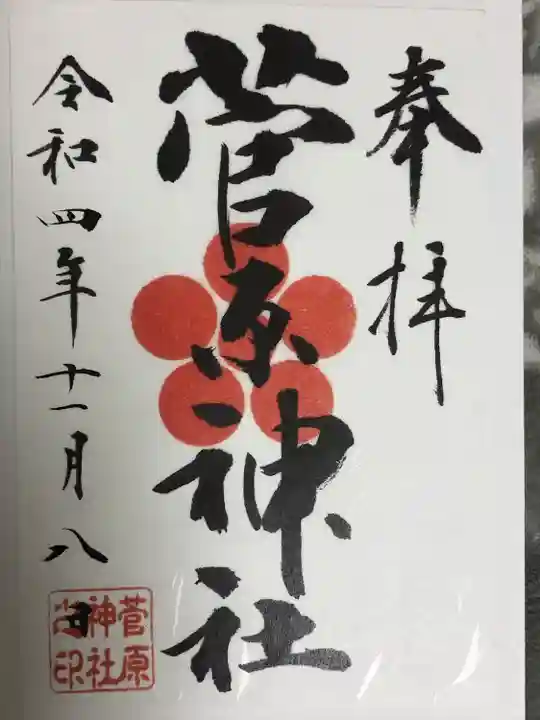 奉拝
菅原神社
令和四年十一月八日
菅原
神社
之印